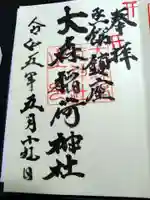 奉拝
函館鎮座
大森稲荷神社
令和五年五月十九日